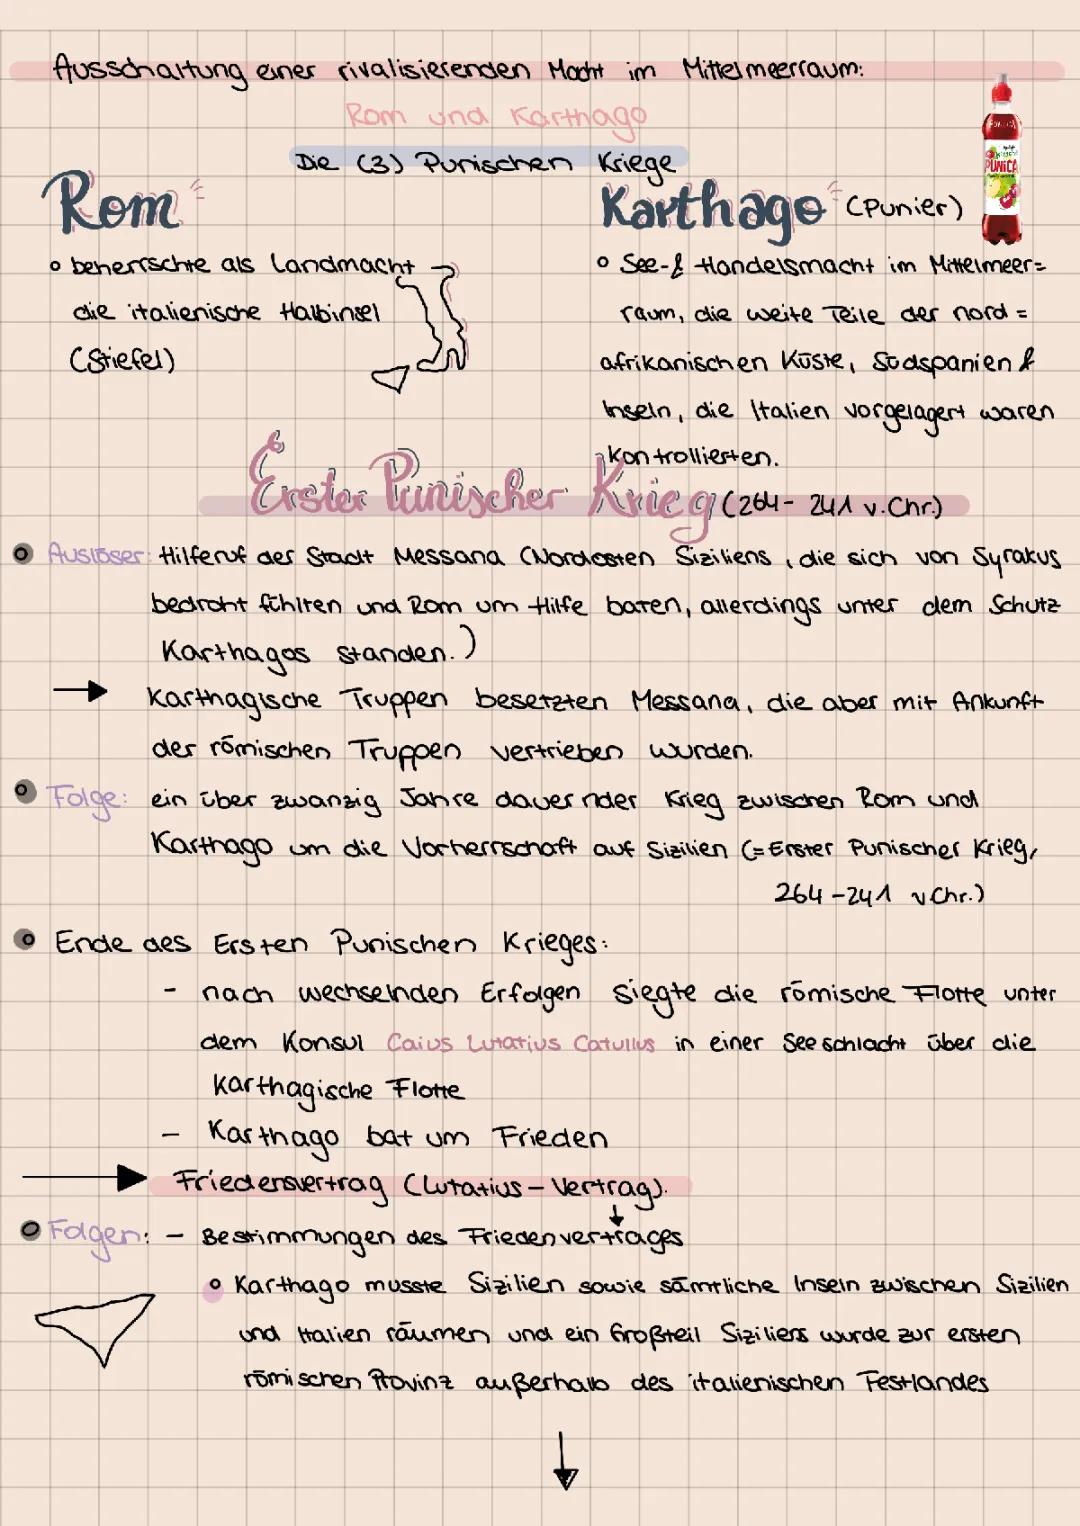 Ausschaltung einer rivalisierenden Macht im Mittelmeerraum:
Rom und Karthago
Die (3) Punischen Kriege
Rom
Karthago (Punier)
PUNICA
beherrschte als Landmacht
die italienische Halbinsel
(Stiefel)
See- & Handelsmacht im Mittelmeer=
raum, die weite Teile der nord=
afrikanischen Küste, Südspanien &
Inseln, die Italien vorgelagert waren
kontrollierten.
Erster Punischer Krieg (264- 241 v.Chr.)
Auslöser: Hilferuf der Stadt Messana (Nordosten Siziliens, die sich von Syrakus
bedroht fühlten und Rom um Hilfe baten, allerdings unter dem Schutz
Karthagos standen.)
Karthagische Truppen besetzten Messana, die aber mit Ankunft
der römischen Truppen vertrieben wurden.
Folge: ein über zwanzig Jahre dauernder Krieg zwischen Rom und
Karthago um die Vorherrschaft auf Sizilien (=Erster Punischer Krieg,
264-241 v Chr.)
Ende des Ersten Punischen Krieges:
- nach wechselnden Erfolgen siegte die römische Flotte unter
dem Konsul Caius Lutatius Catullus in einer Seeschlacht über die
karthagische Flotte
- Karthago bat um Frieden
Friedensvertrag (Lutatius-Vertrag).
Folgen: - Bestimmungen des Friedenvertrages
Karthago musste Sizilien sowie sämtliche Inseln zwischen Sizilien
und Italien räumen und ein Großteil Siziliens wurde zur ersten
römischen Provinz außerhalb des italienischen Festlandes